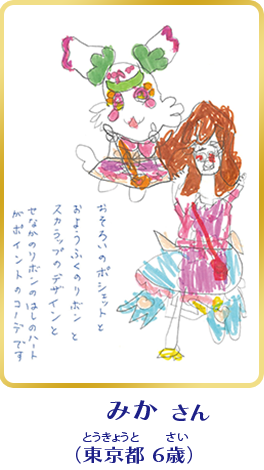 おそろいのポシェットと
おようふくのリボンと
スカラップのデザインと
せなかのリボンのはしのハート
がポイントのコーデです
みか さん
とうきょうと さい
（東京都 6歳）